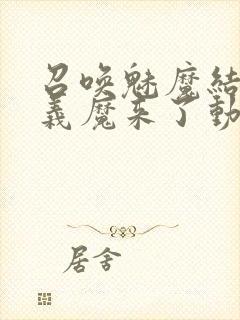 召唤魅魔结
義魔来了動
居舍